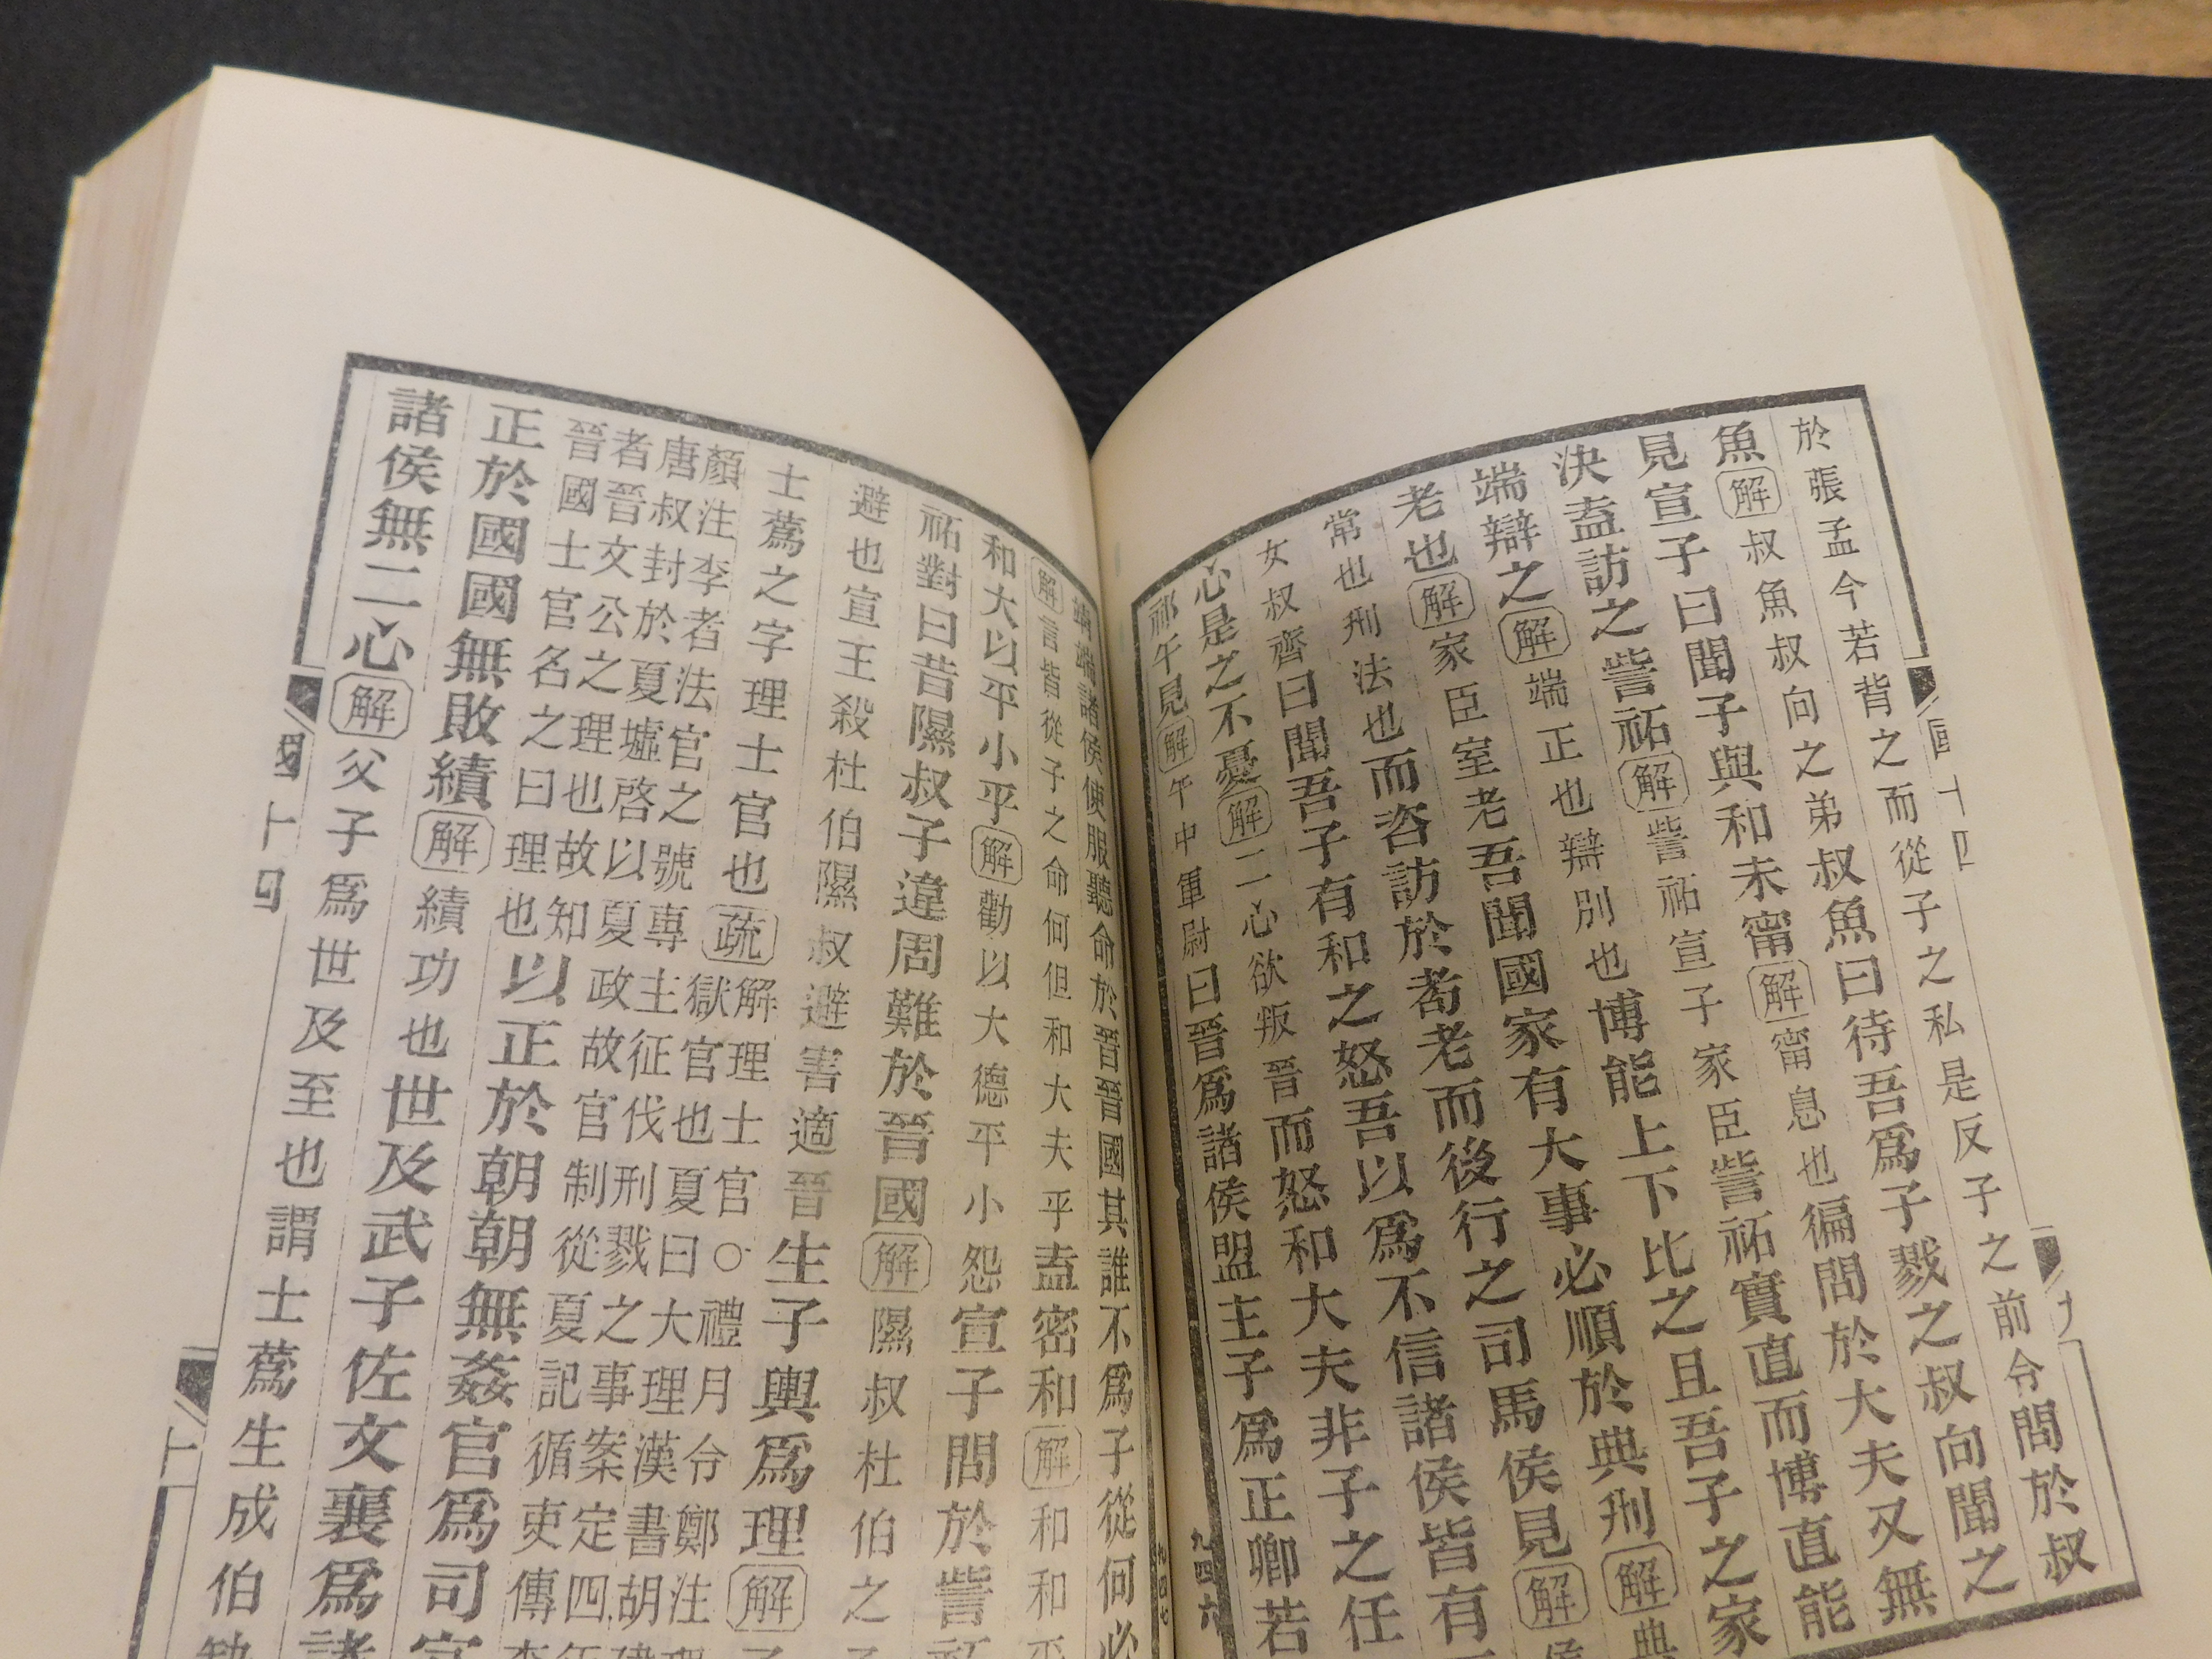 於張孟今若背之而從子之私是反子之前令問於叔
魚解叔魚叔向之弟叔魚曰待吾爲子戮之叔向聞之
見宣子曰聞子與和未甯解甯息也徧問於大夫又無
決盍訪之訾祏解訾祏宣子家臣訾祏實直而博直能
端辯之解端正也辯別也博能上下比之且吾子之家
老也解家臣室老吾聞國家有大事必順於典刑解典
常也刑法也而咨訪於耉老而後行之司馬侯見解
女叔齊曰聞吾子有和之怒吾以爲不信諸侯皆有
心是之不憂解二心欲叛晉而怒和大夫非子之任
祁午見解午中軍尉曰晉爲諸侯盟主子爲正卿若
九四六
國十四
九
諸侯使服聽命於晉晉國其誰不爲子從何必
解言皆從子之命何但和大夫乎盍密和解和和平
和大以平小乎解勸以大德平小怨宣子問於訾
祏對曰昔隰叔子違周難於晉國解隰叔杜伯之子
避也宣王殺杜伯隰叔避害適晉生子輿爲理解子
士蒍之字理士官也疏解理士官○禮月令鄭注
獄官也夏曰大理漢書胡
顏注李者法官之號專主征伐刑戮之事案定四
唐叔封於夏墟啓以夏政故官制從夏記循吏傳
者晉文公之理也故知
晉國士官名之曰理也以正於朝朝無姦官爲司
正於國國無敗績解績功也世及武子佐文襄爲諸
諸侯無二心解父子爲世及至也謂士蒍生成伯缺
國十四
十